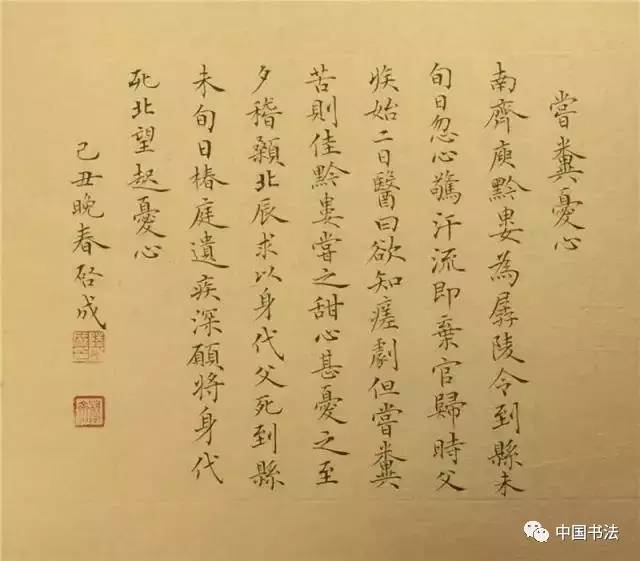 嘗糞憂心
南齊庾黔婁為孱陵令到縣未
旬日忽心驚汗流即棄官歸時父
疾始二日醫曰欲知瘥劇但嘗糞
苦則佳黔婁嘗之甜心甚憂之至
夕稽顙北辰求以身代父死到縣
未旬日椿庭遺疾深願將身代
死北望起憂心
己丑晚春启成
中国书法